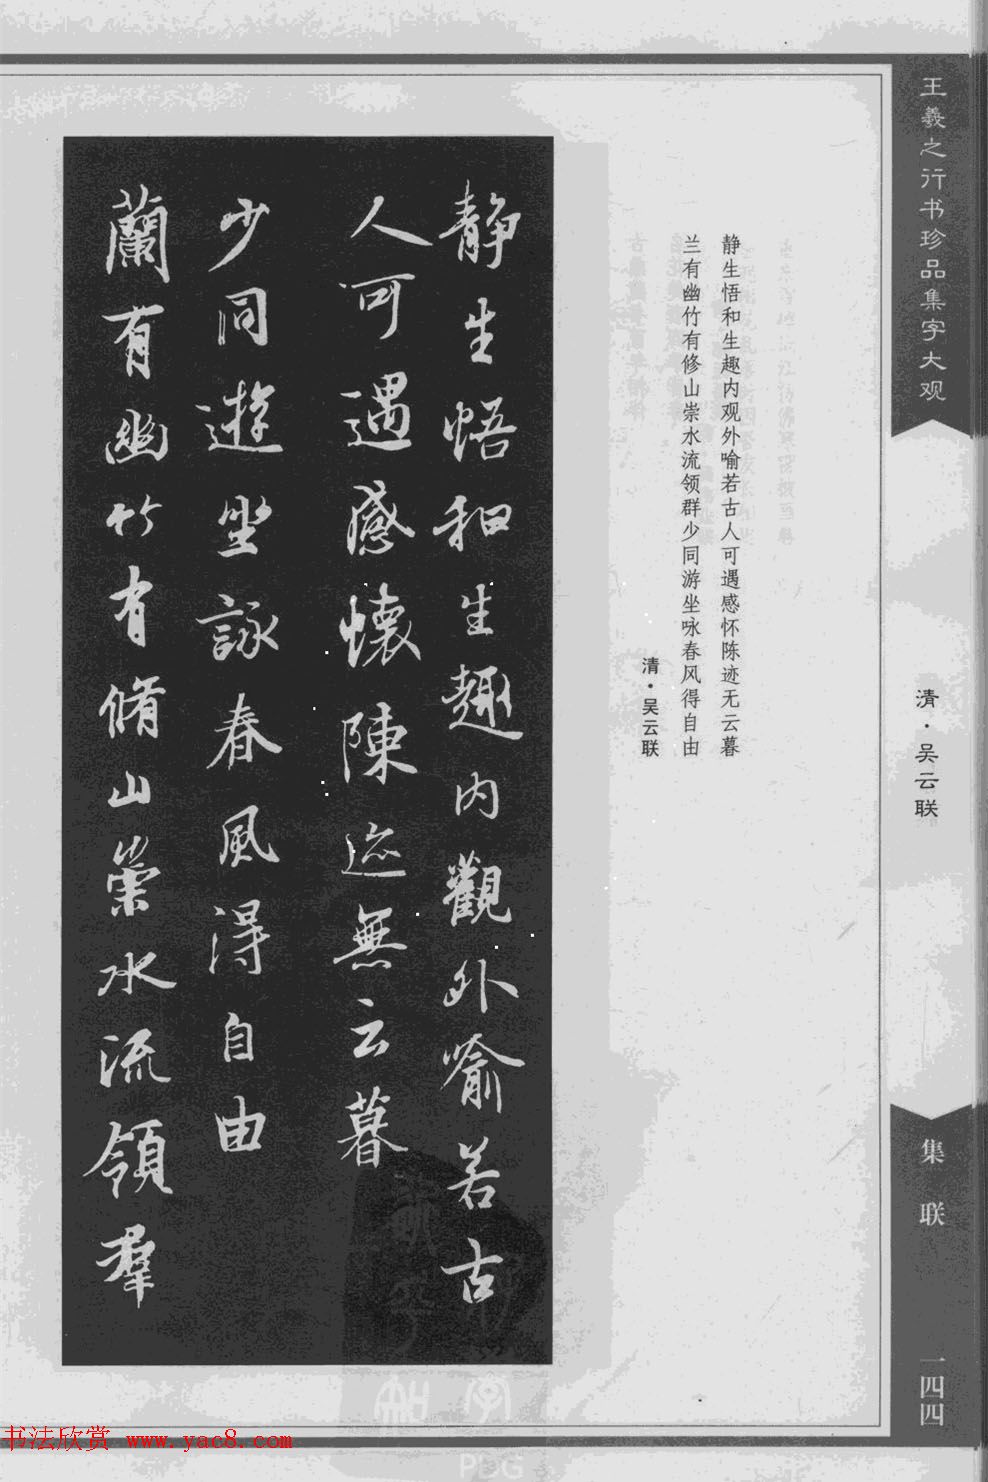 王羲之行书珍品集字大观
清·吴云联
集联
一四四
静生悟和生趣内观外喻若古人可遇感怀陈迹无云暮
兰有幽竹有修山崇水流领群少同游坐咏春风得自由
清·吴云联
静生悟和生趣内觀外喻若古
人可遇感懷陳迹無云暮
蘭有幽竹有脩山崇水流領羣
少同遊坐詠春風得自由
书法欣赏 www.yac8.com
PDG